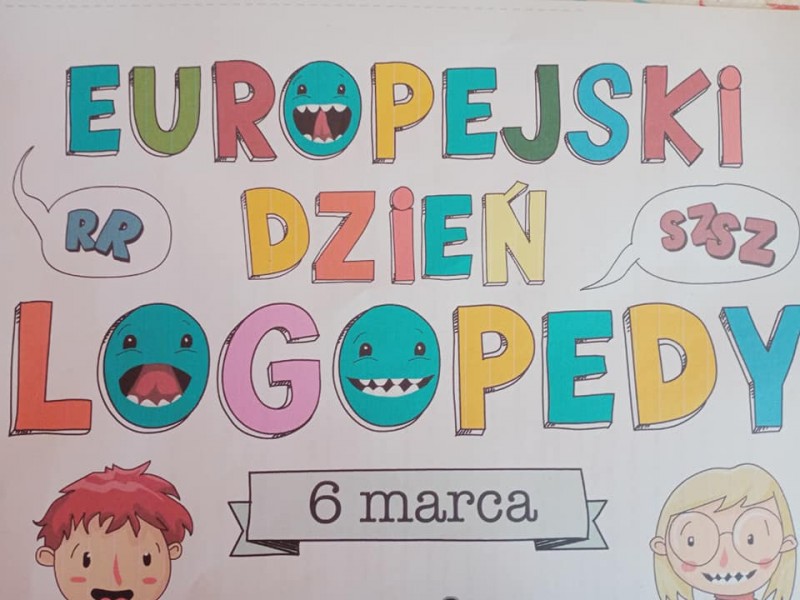 EUROPEJSKI
RR
DZiEŃ
SZSZ
LOGOPEDY
6 marca